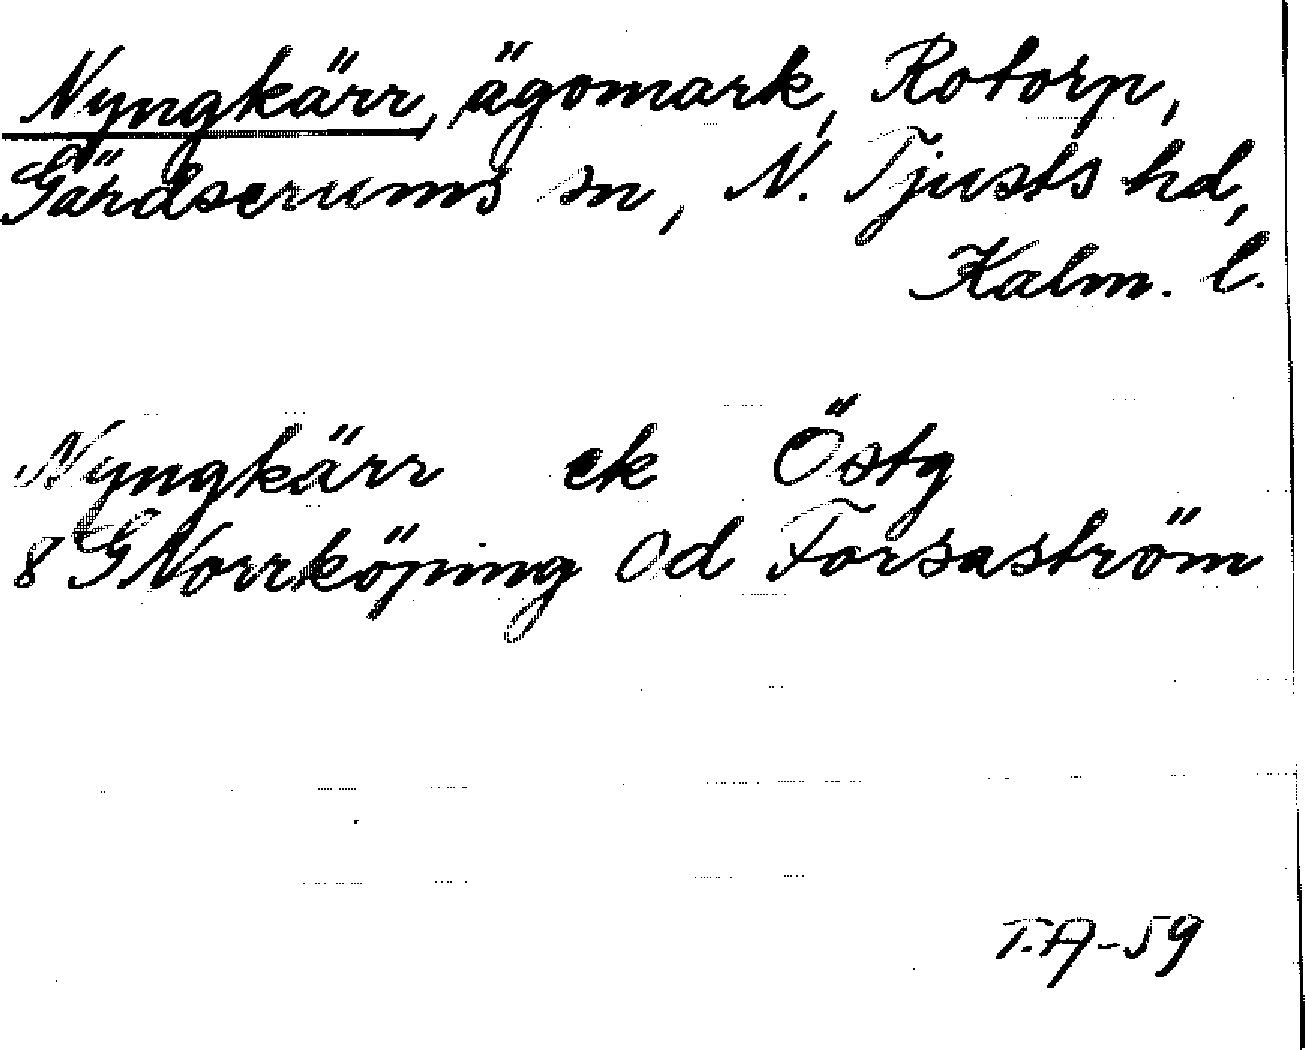 Nyngkärr, ägomark, Rotorp,
Gärdserums sn, N. Tjusts hd,
Kalm. l.
Nyngkärr ek Östg
8 G Norrköping 0d Forsaström
T.A-59